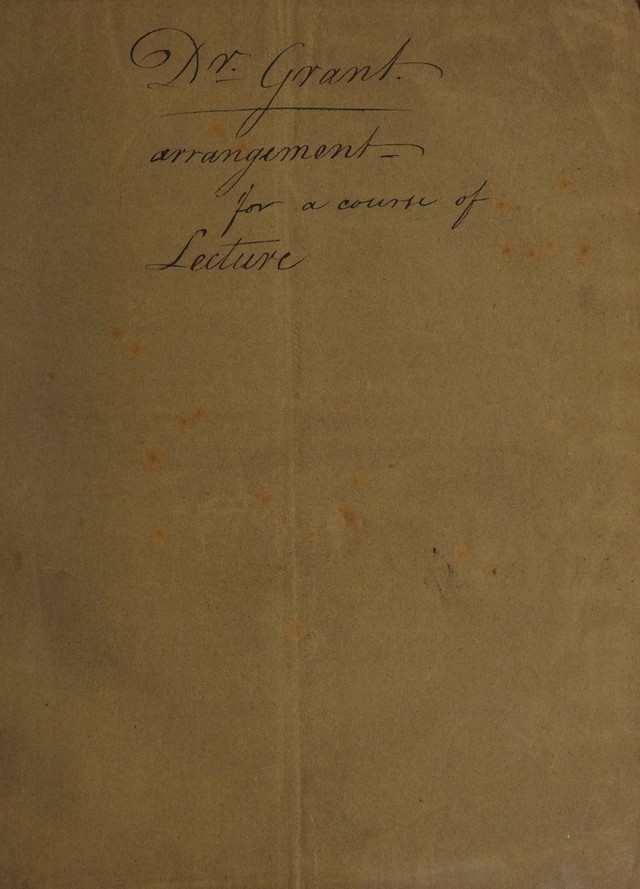 Dr. Grant.
arrangement
for a course of
Lecture